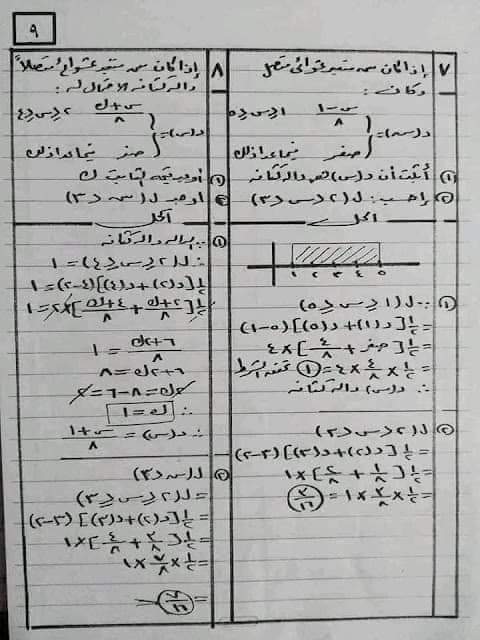 ٩
٧ إذا كان سہ متغير عشوائى متصل
وكان :
د(سہ) = { (س-١)/٨   ١ ≤ س ≤ ٥
صفر   فيما عدا ذلك
١) أثبت أن د(س) هى دالة كثافة
٢) إحسب : ل(٢ ≤ س ≤ ٣)
الحل
1 2 3 4 5
١) ∵ ل(١ ≤ س ≤ ٥)
= ١/٢ [د(١) + د(٥)] (٥-١)
= ١/٢ [صفر + ٤/٨] × ٤
= ١/٢ × ٤/٨ × ٤ = ١ تحقق الشرط
∴ د(س) دالة كثافة
٢) ل(٢ ≤ س ≤ ٣)
= ١/٢ [د(٢) + د(٣)] (٣-٢)
= ١/٢ [١/٨ + ٢/٨] × ١
= ١/٢ × ٣/٨ × ١ = ٣/١٦
٨ إذا كان سہ متغير عشوائى متصلاً
دالة كثافة الاحتمال له :
د(س) = { (س+ك)/٨   ٢ ≤ س ≤ ٤
صفر   فيما عدا ذلك
١) أوجد قيمة الثابت ك
٢) أوجد ل(سہ ≤ ٣)
الحل
١) ∵ الدالة دالة كثافة
∴ ل(٢ ≤ س ≤ ٤) = ١
١/٢ [د(٢) + د(٤)] (٤-٢) = ١
١/٢ [(٢+ك)/٨ + (٤+ك)/٨] × ٢ = ١
(٦+٢ك)/٨ = ١
٦+٢ك = ٨
٢ك = ٨-٦ = ٢
∴ ك = ١
∴ د(س) = (س+١)/٨
٢) ل(س ≤ ٣)
= ل(٢ ≤ س ≤ ٣)
= ١/٢ [د(٢) + د(٣)] (٣-٢)
= ١/٢ [٣/٨ + ٤/٨] × ١
= ١/٢ × ٧/٨ × ١
= ٧/١٦